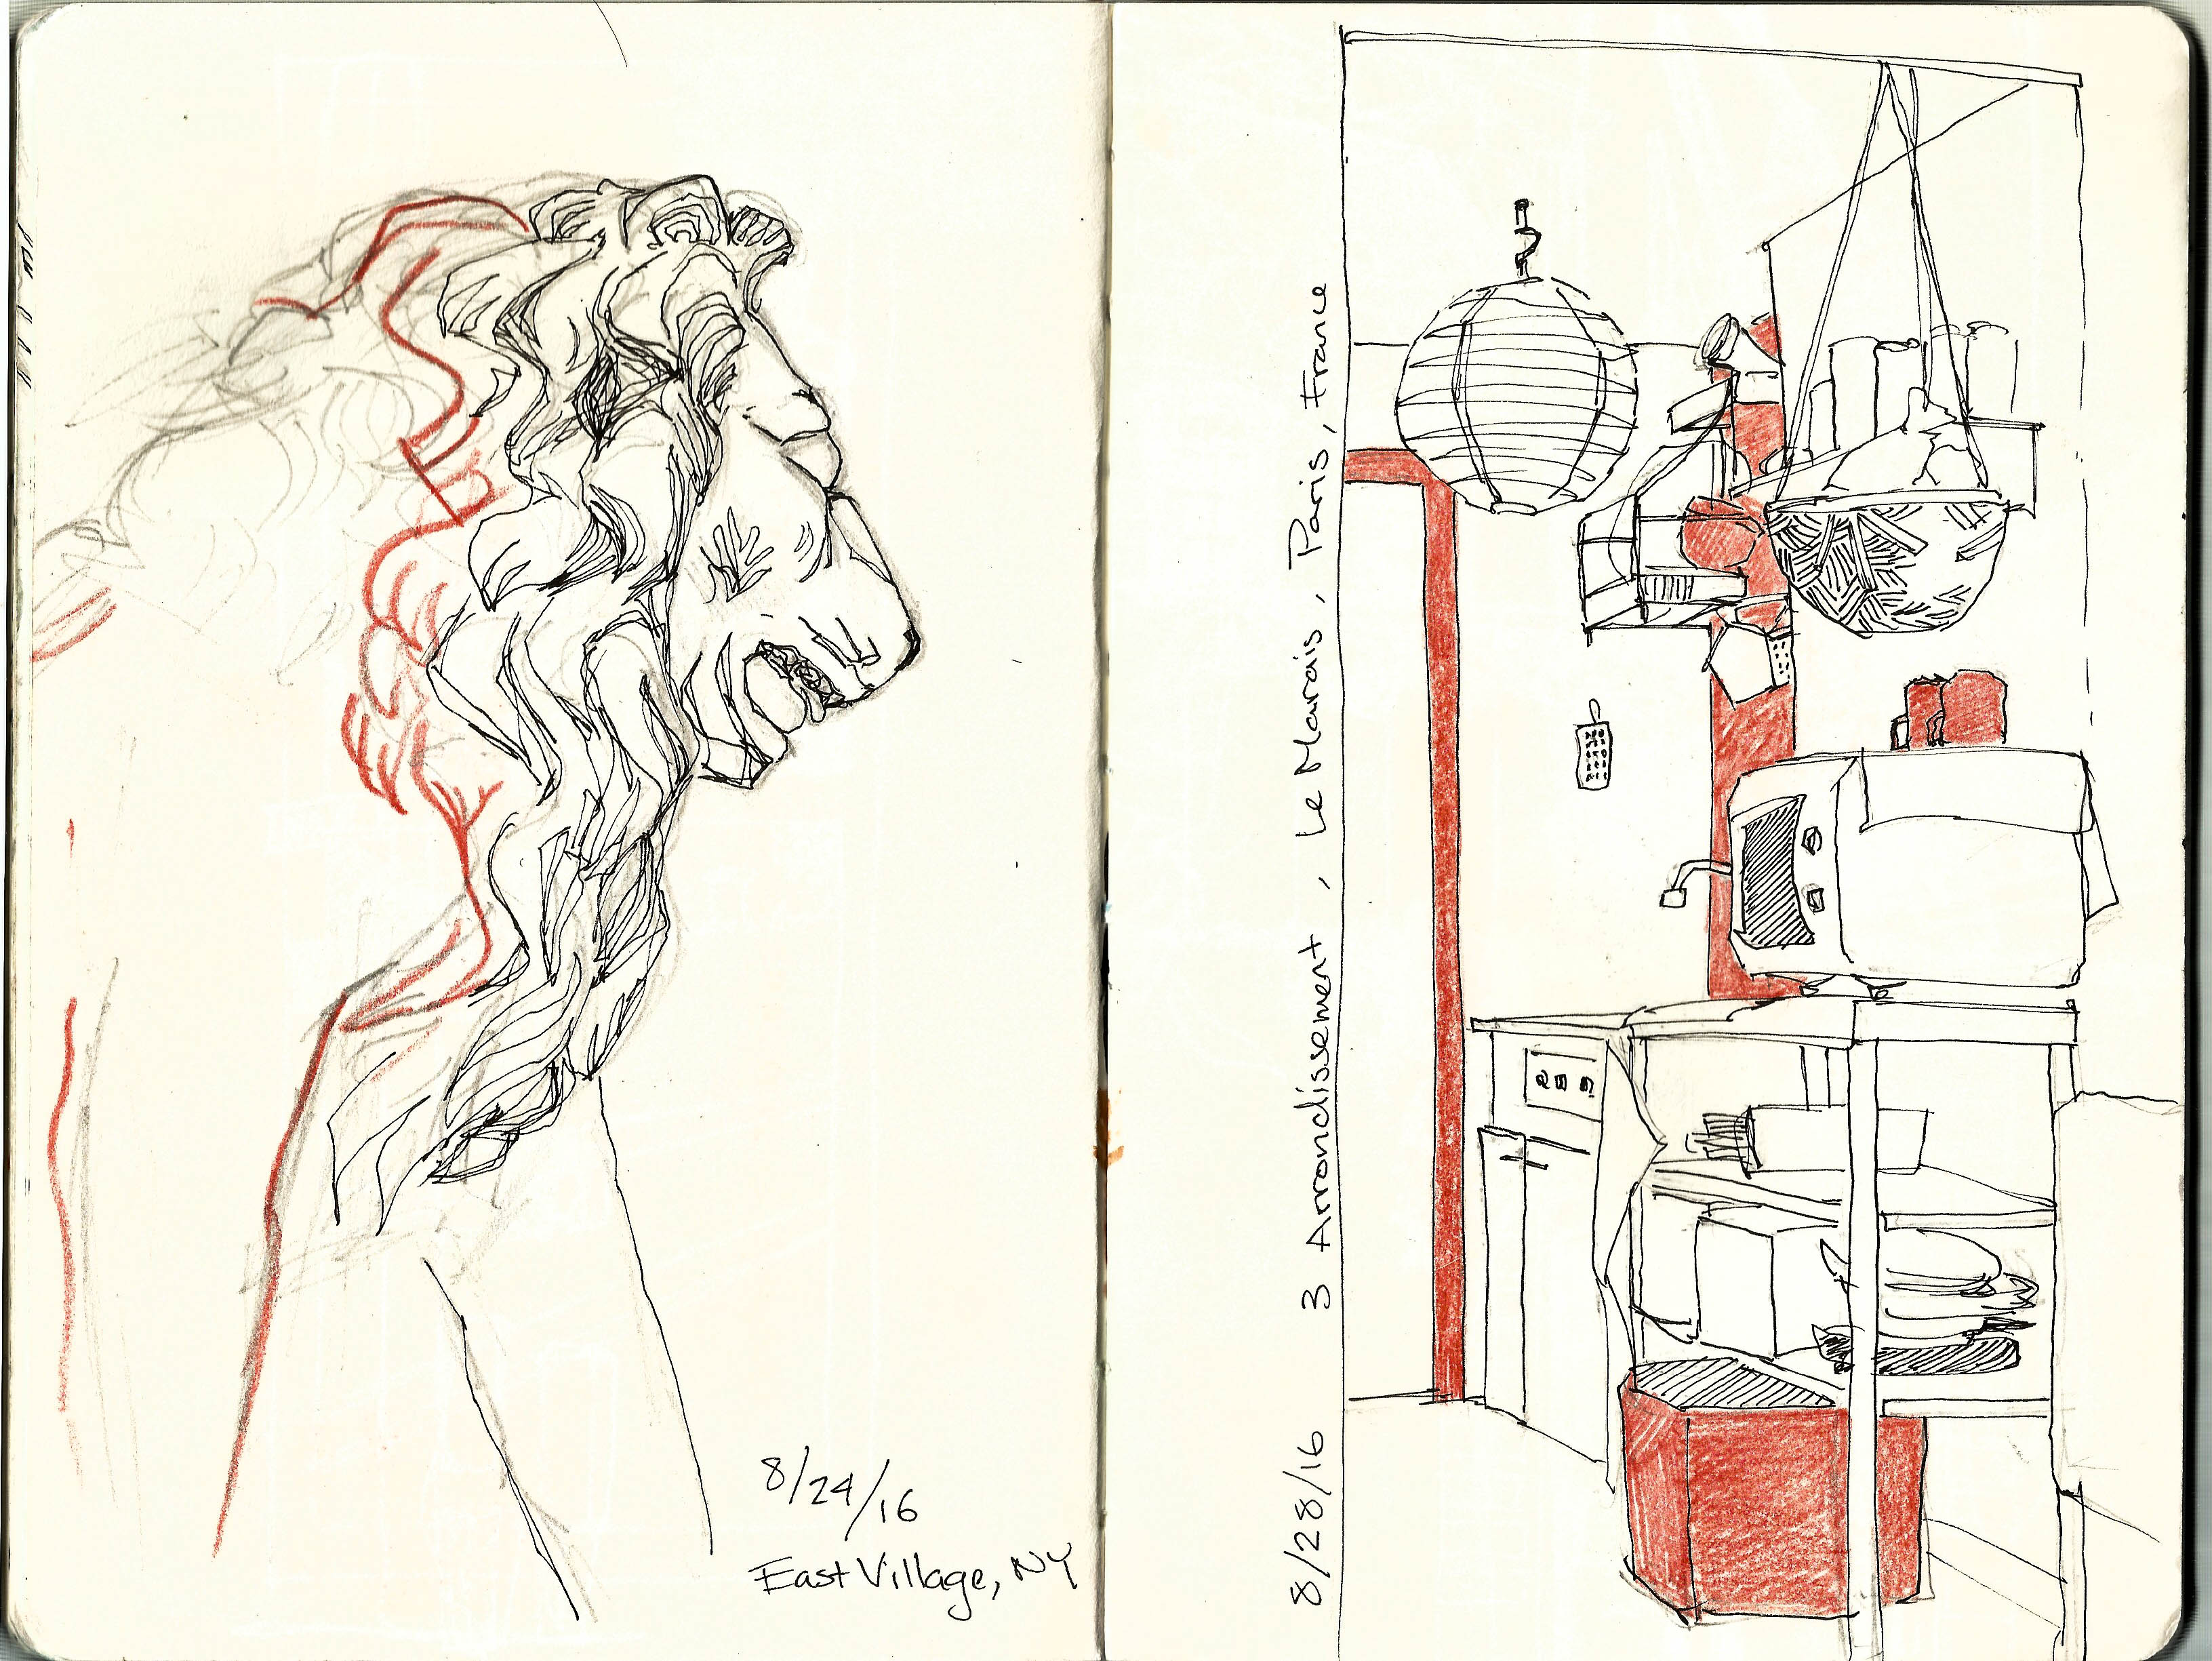 8/24/16
East Village, NY
8/28/16 3 Arrondissement, Le Marais, Paris, France